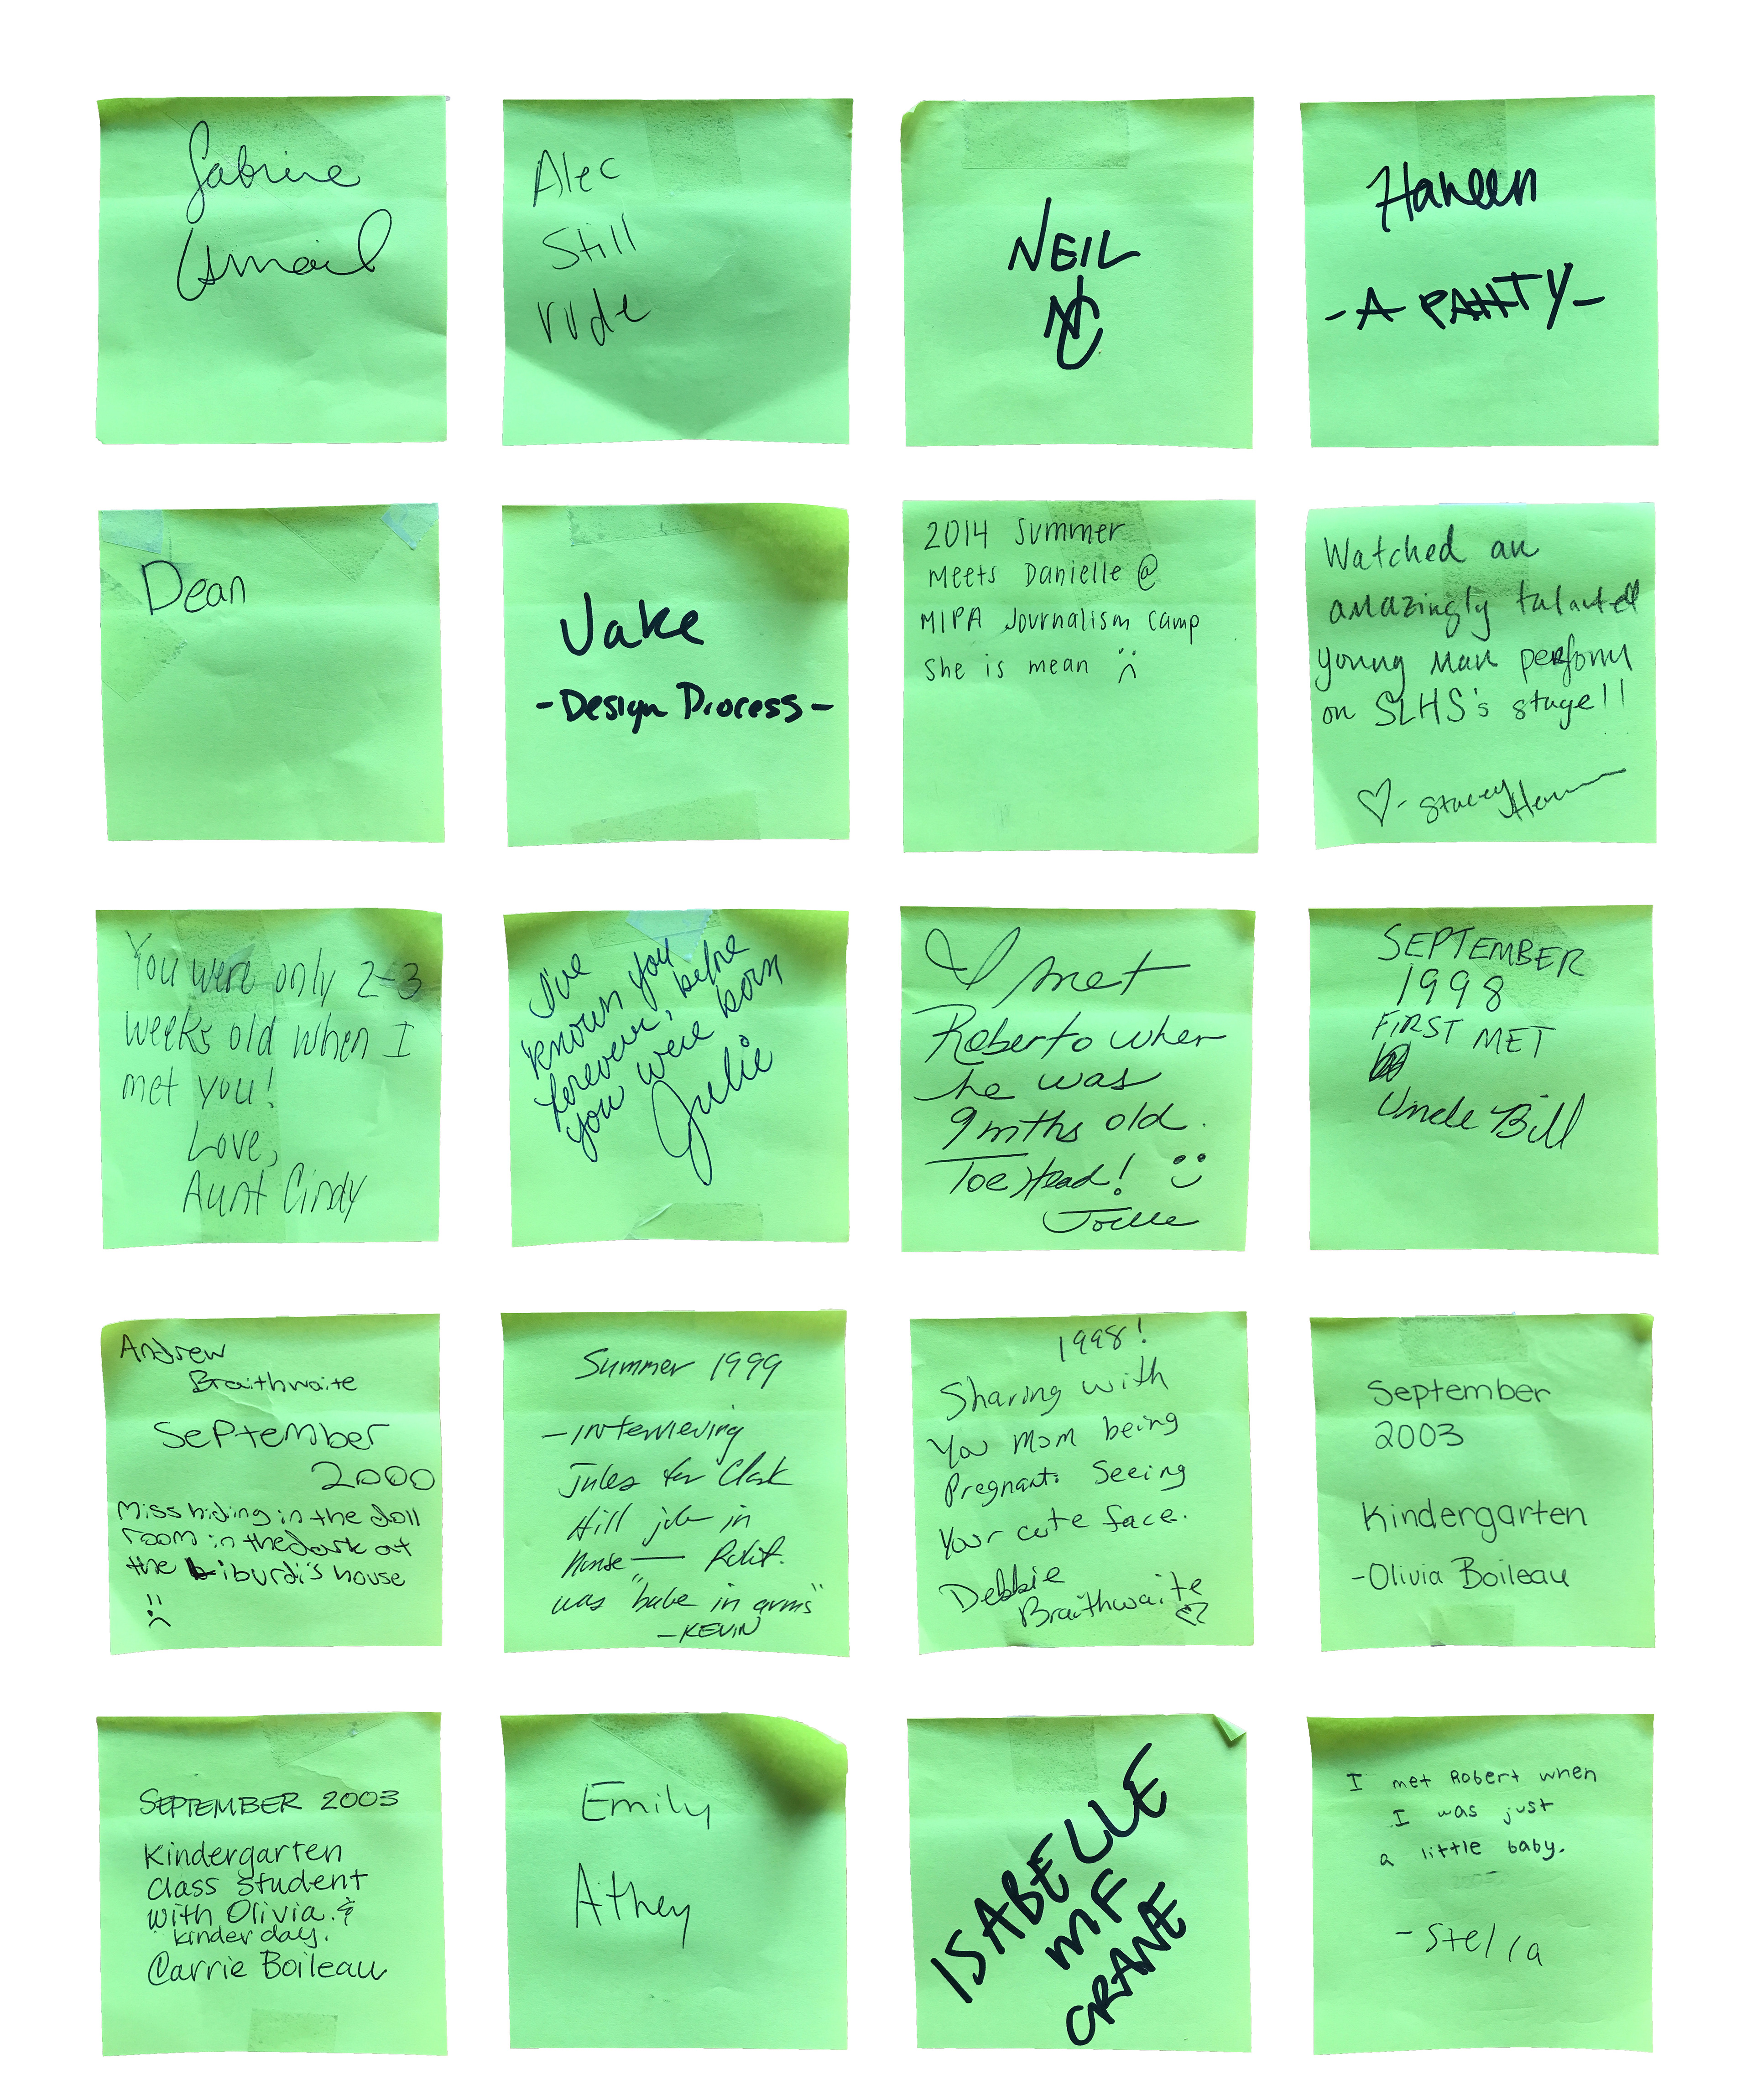 Sabrine
Ismail
Alec
Still
rude
NEIL
NC
Haneen
- A PAHTY -
Dean
Jake
- Design Process -
2014 Summer
meets Danielle @
MIPA Journalism Camp
She is mean
Watched an
amazingly talented
young man perform
on SLHS's stage!!
- Stacey
You were only 2-3
weeks old when I
met you!
Love,
Aunt Cindy
I've
known you
forever, before
you were born
Julie
I met
Roberto when
he was
9 mths old.
Toe Head!
Joelle
SEPTEMBER
1998
FIRST MET
Uncle Bill
Andrew
Braithwaite
September
2000
Miss hiding in the doll
room in the dark at
the Liburdi's house
Summer 1999
- Interviewing
Jules for Clark
Hill job in
house — Robt.
was "babe in arms"
- KEVIN
1998!
Sharing with
You Mom being
Pregnant. Seeing
Your cute face.
Debbie
Braithwaite
September
2003
Kindergarten
- Olivia Boileau
SEPTEMBER 2003
Kindergarten
class student
with Olivia. &
kinder day.
Carrie Boileau
Emily
Athey
ISABELLE
MF
CRANE
I met Robert when
I was just
a little baby.
- Stella